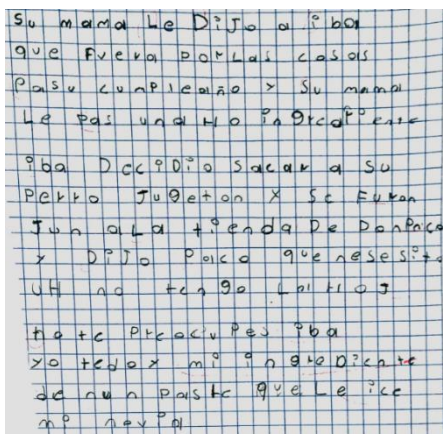 Su mama Le DiJo a iba
que Fuera porLas cosas
Pasu cunpleaño y su mama
Le pas una Ho ingrediente
iba DeciDio Sacar a Su
Perro Jugeton y Se Furon
Jun aLa tienda De Don
y DiJo Paco que nesesita
UH no tengo
no te PreocuPes iba
yo tedoy mi ingreDiente
de nun paste que Le ice
mi novia